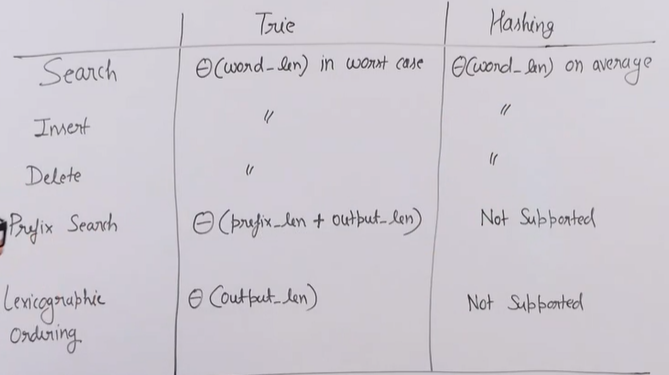 Trie Hashing
Search Θ(word_len) in worst case Θ(word_len) on average
Insert 〃 〃
Delete 〃 〃
Prefix Search Θ(prefix_len + output_len) Not Supported
Lexicographic Θ(output_len) Not Supported
Ordering